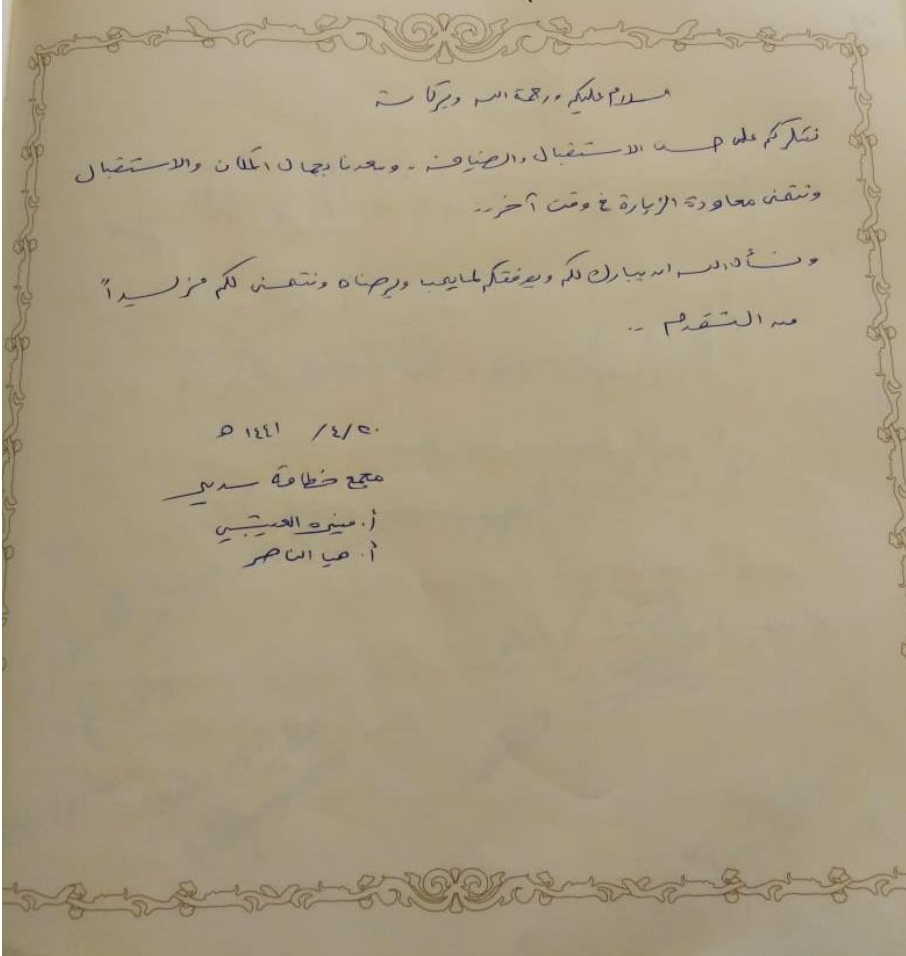 السلام عليكم ورحمة الله وبركاته
نشكركم على حسن الاستقبال والضيافة - وسعدنا بجمال المكان والاستقبال
ونتمنى معاودة الزيارة في وقت آخر..
ونسأل الله ان يبارك لكم ويوفقكم لما يحب ويرضاه ونتمنى لكم مزيداً
من التقدم ..
٢٠/٤/ ١٤٤١ ه
مجمع سدير
أ. منيره العتيبي
أ. هيا الناصر